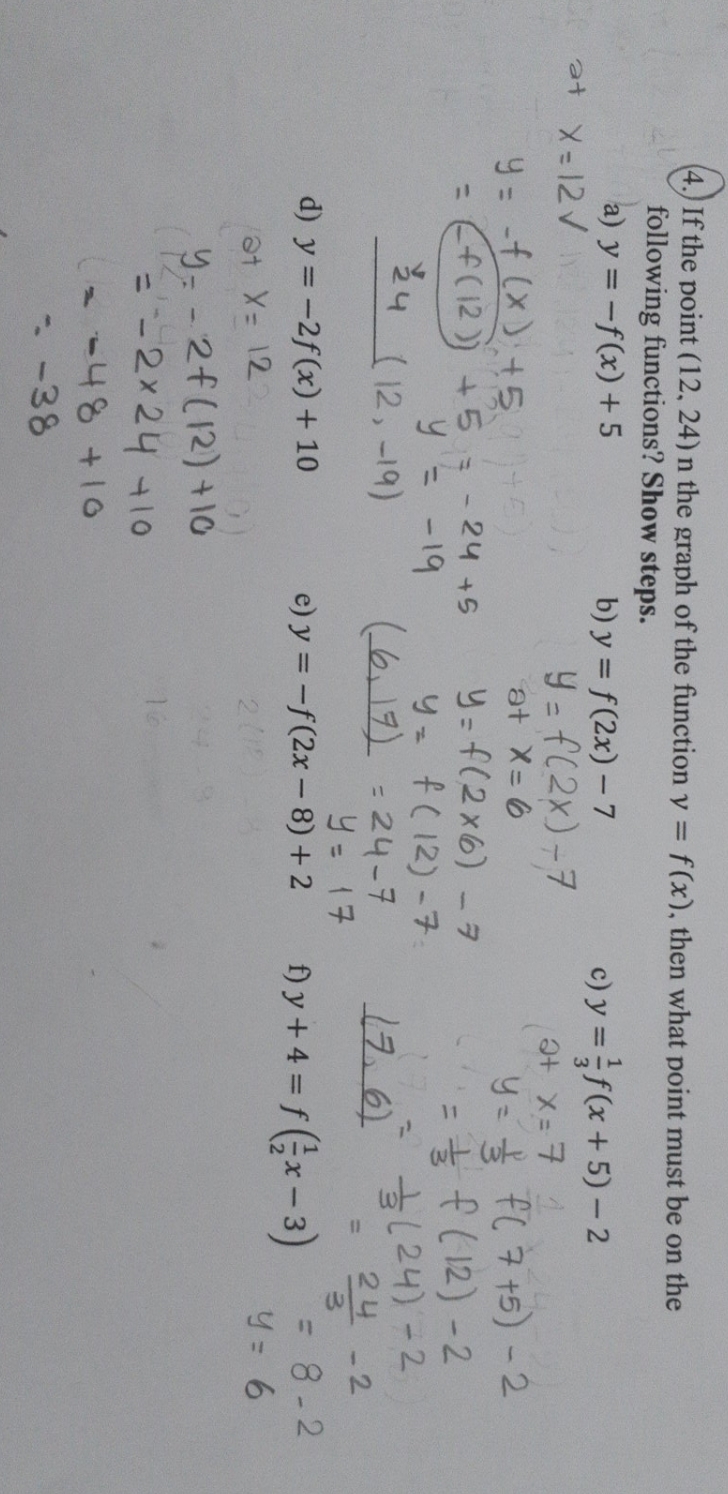 4. If the point (12, 24) n the graph of the function y = f(x), then what point must be on the
following functions? Show steps.
a) y = −f(x) + 5
at x = 12 ✓
y = -f(x) + 5
= (-f(12)) + 5 = - 24 + 5
24
y = -19
(12, -19)
b) y = f(2x) − 7
y = f(2x) - 7
at x = 6
y = f(2×6) - 7
y = f(12) - 7
= 24 - 7
y = 17
(6, 17)
c) y = 1/3 f(x + 5) − 2
at x = 7
y = 1/3 f(7+5) - 2
= 1/3 f(12) - 2
= 1/3 (24) - 2
= 24/3 - 2
= 8 - 2
y = 6
(7, 6)
d) y = −2f(x) + 10
at x = 12
y = - 2f(12) + 10
= -2 × 24 + 10
= -48 + 10
= -38
e) y = −f(2x − 8) + 2
f) y + 4 = f(1/2 x − 3)